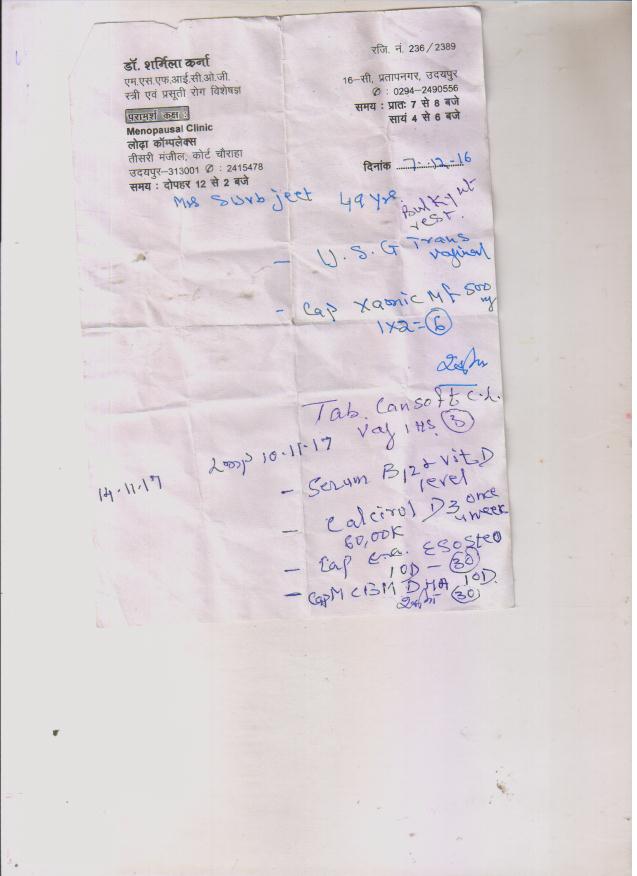 डॉ. शर्मिला कर्ना
एम.एस.एफ.आई.सी.ओ.जी.
स्त्री एवं प्रसूती रोग विशेषज्ञ
परामर्श कक्ष :
Menopausal Clinic
लोढ़ा कॉम्पलेक्स
तीसरी मंजील, कोर्ट चौराहा
उदयपुर-313001 ✆ : 2415478
समय : दोपहर 12 से 2 बजे
रजि. नं. 236/2389
16-सी, प्रतापनगर, उदयपुर
✆ : 0294-2490556
समय : प्रातः 7 से 8 बजे
सायं 4 से 6 बजे
दिनांक 7-12-16
Mrs Surbjeet 49 yrs.
Bulky ut
rest.
- U.S.G Trans
vaginal
- Cap Xamic Mf 500
mg
1x2=6
Tab. Cansoft C.L.
Vag 1 HS. 3
10-11-17
14.11.17
- Serum B12 & Vit D
level
- Calcirol D3 once
60,00K a week
- Cap Esosteo
1OD - 30
- Cap M CBM DHA 1OD.
30